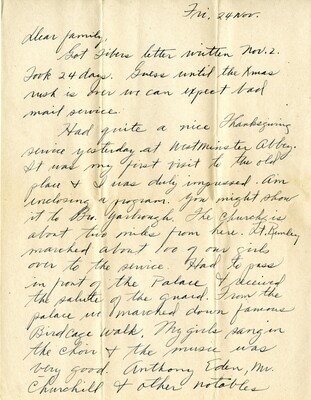 Fri. 24 Nov.
Dear family,
Got Libers letter written Nov. 2.
Took 24 days. Guess until the Xmas
rush is over we can expect bad
mail service.
Had quite a nice Thanksgiving
service yesterday at Westminster Abbey.
It was my first visit to the old
place & I was duly impressed. Am
inclosing a program. You might show
it to Bro. Yarbrough. The church is
about two miles from here. Lt.
marched about 100 of our girls
over to the service. Had to pass
in front of the Palace & received
the salute of the guard. From the
palace we marched down famous
Birdcage Walk. My girls sang in
the choir & the music was
very good. Anthony Eden, Mr.
Churchill & other notables